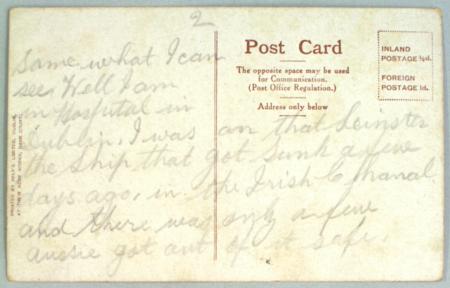 2
Post Card
The opposite space may be used
for Communication.
(Post Office Regulation.)
Address only below
INLAND
POSTAGE ½d.
FOREIGN
POSTAGE 1d.
same what I can
see Well I am
in Hospital in
Dublin, I was on that Leinster
the ship that got sunk a few
days ago, in the Irish Chanal
and there was only a few
Aussie got out of it safe.